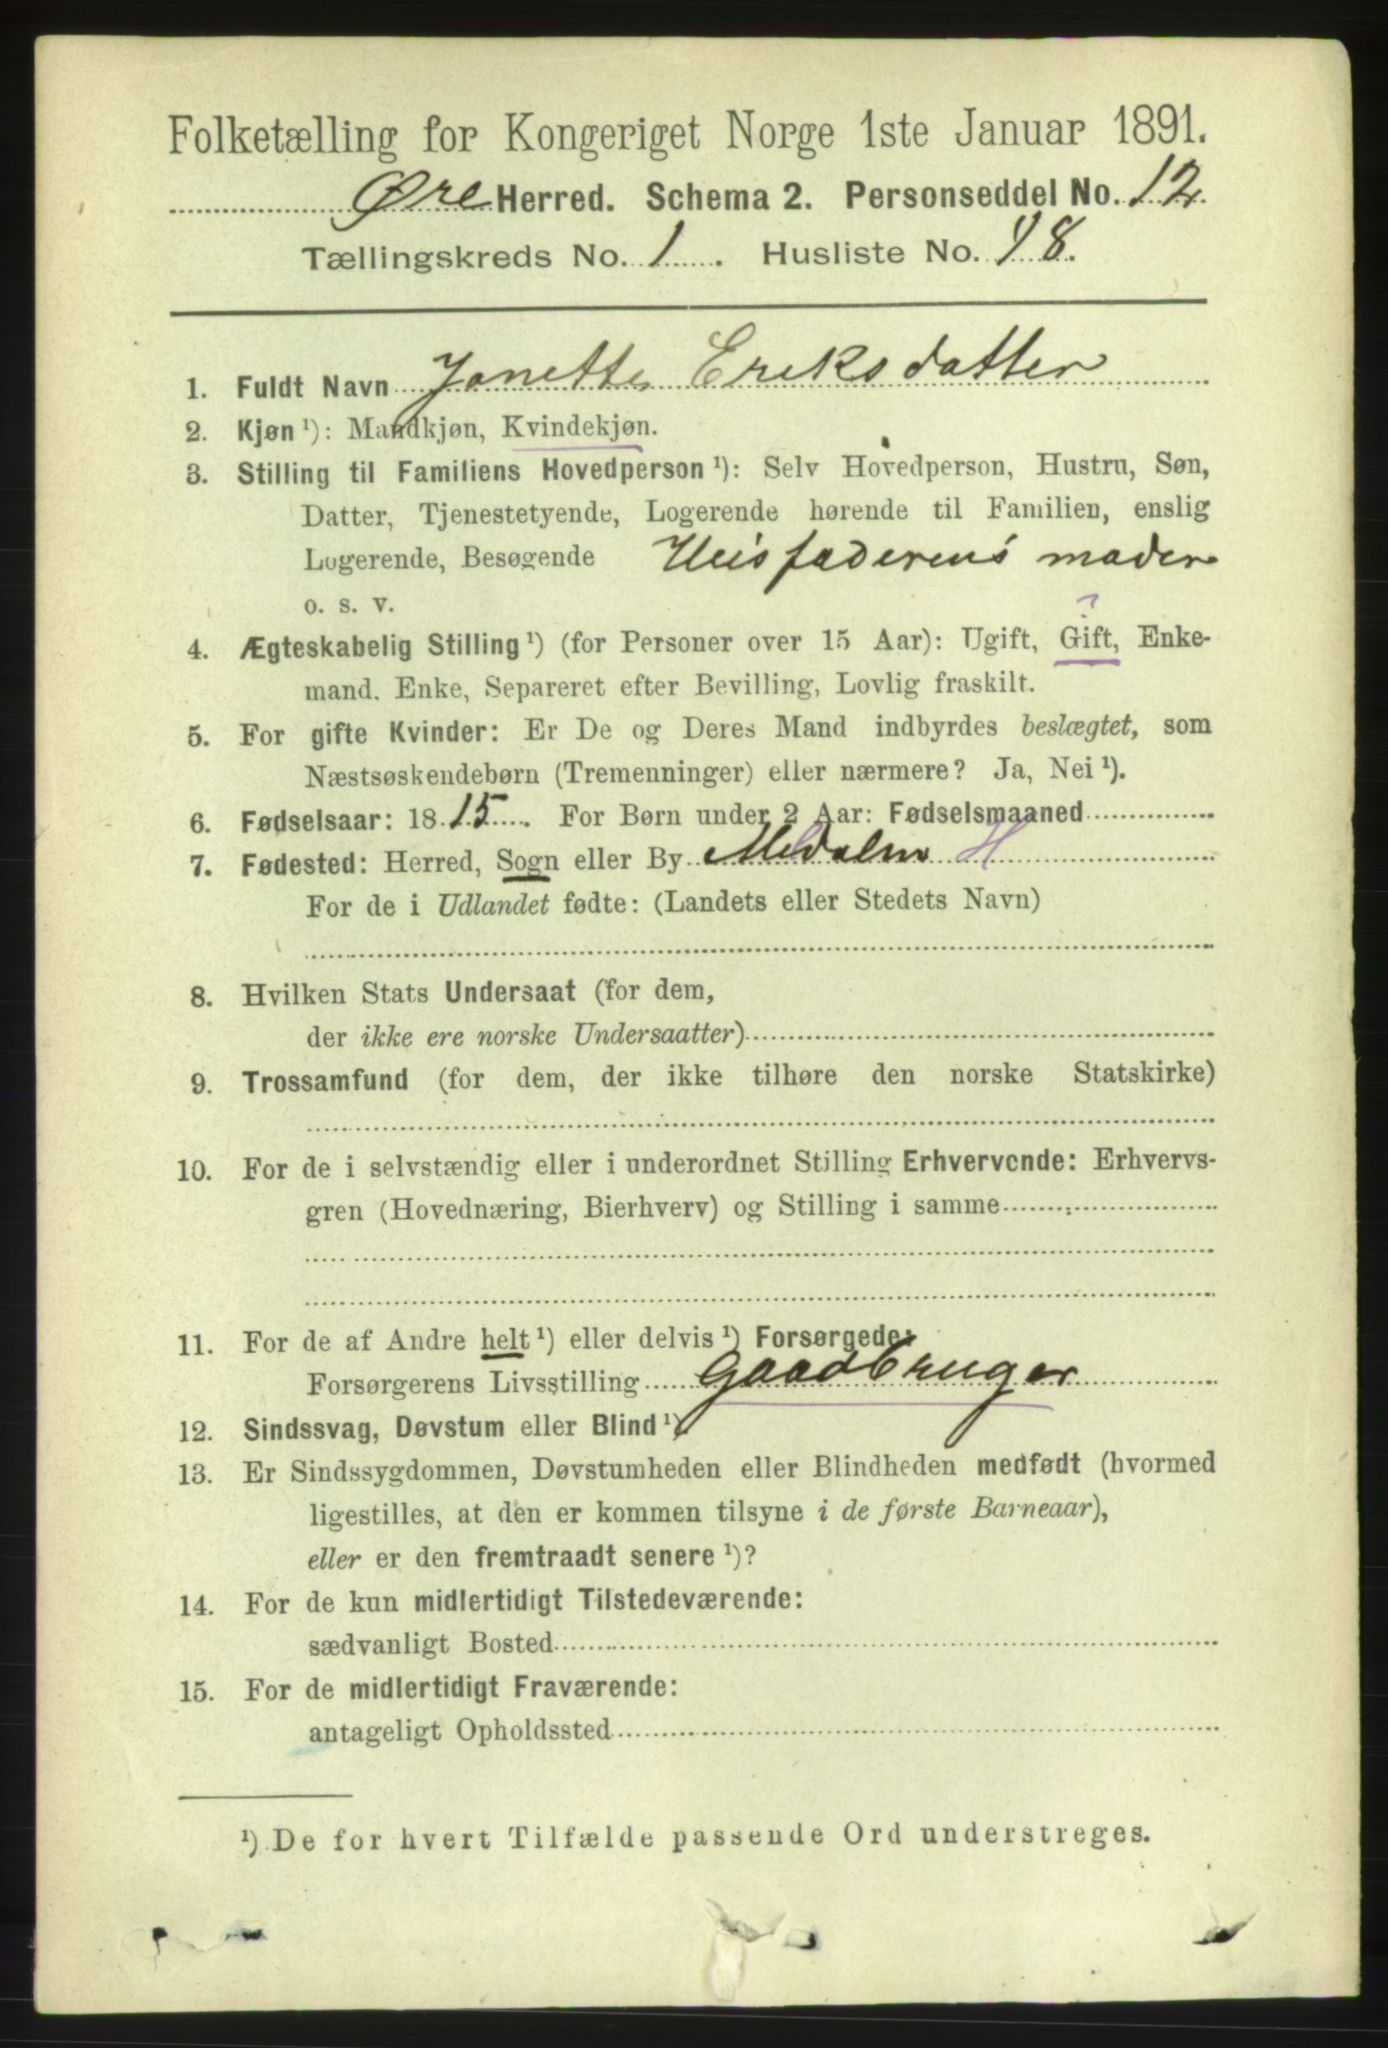 Folketælling for Kongeriget Norge 1ste Januar 1891.
Øre Herred. Schema 2. Personseddel No. 12
Tællingskreds No. 1. Husliste No. 48.
1. Fuldt Navn Jonette Eriksdatter
2. Kjøn ¹): Mandkjøn, Kvindekjøn.
3. Stilling til Familiens Hovedperson ¹): Selv Hovedperson, Hustru, Søn,
Datter, Tjenestetyende, Logerende hørende til Familien, enslig
Logerende, Besøgende Husfaderens moder
o. s. v.
?
4. Ægteskabelig Stilling ¹) (for Personer over 15 Aar): Ugift, Gift, Enke-
mand. Enke, Separeret efter Bevilling, Lovlig fraskilt.
5. For gifte Kvinder: Er De og Deres Mand indbyrdes beslægtet, som
Næstsøskendebørn (Tremenninger) eller nærmere? Ja, Nei ¹).
6. Fødselsaar: 1815. For Børn under 2 Aar: Fødselsmaaned
7. Fødested: Herred, Sogn eller By Meldalen H
For de i Udlandet fødte: (Landets eller Stedets Navn)
8. Hvilken Stats Undersaat (for dem,
der ikke ere norske Undersaatter)
9. Trossamfund (for dem, der ikke tilhøre den norske Statskirke)
10. For de i selvstændig eller i underordnet Stilling Erhvervende: Erhvervs-
gren (Hovednæring, Bierhverv) og Stilling i samme
11. For de af Andre helt ¹) eller delvis ¹) Forsørgede:
Forsørgerens Livsstilling Gaadbruger
12. Sindssvag, Døvstum eller Blind ¹)
13. Er Sindssygdommen, Døvstumheden eller Blindheden medfødt (hvormed
ligestilles, at den er kommen tilsyne i de første Barneaar),
eller er den fremtraadt senere ¹)?
14. For de kun midlertidigt Tilstedeværende:
sædvanligt Bosted
15. For de midlertidigt Fraværende:
antageligt Opholdssted
¹) De for hvert Tilfælde passende Ord understreges.